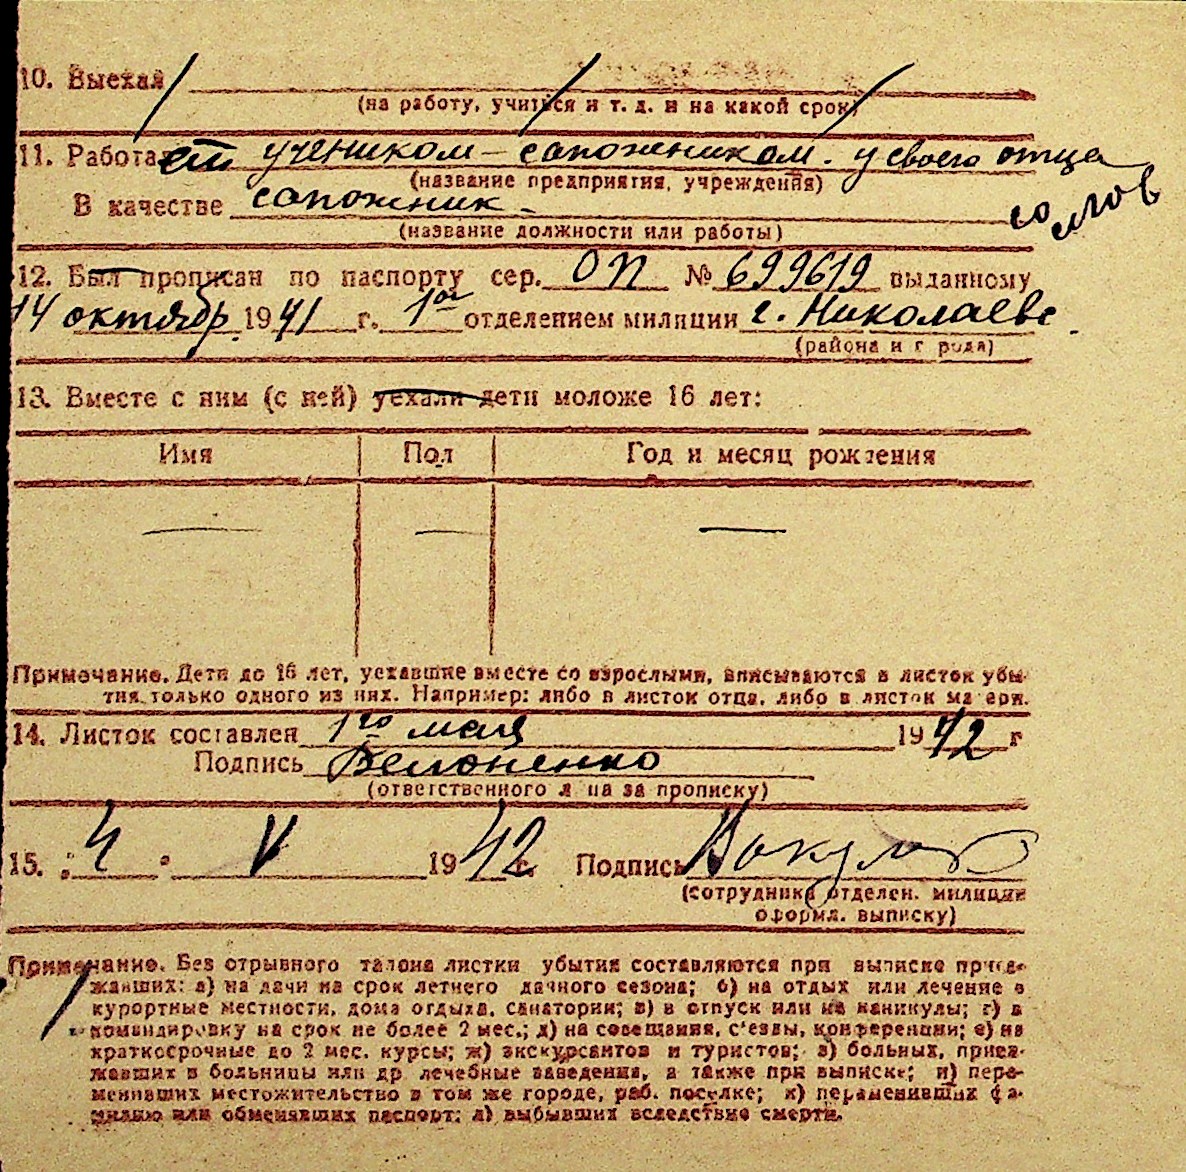 10. Выехал
(на работу, учиться и т. д. и на какой срок)
11. Работает учеником – сапожником. у своего отца
(название предприятия, учреждения)
В качестве сапожник –
(название должности или работы)
12. Был прописан по паспорту сер. ОП № 699619 выданному
14 октябр 1941 г. 1ое отделением милиции г. Николаеве.
(района и города)
13. Вместе с ним (с ней) уехали дети моложе 16 лет:
Имя Пол Год и месяц рождения
— — —
Примечание. Дети до 16 лет, уехавшие вместе со взрослыми, вписываются в листок убы-
тия только одного из них. Например: либо в листок отца, либо в листок матери.
14. Листок составлен 1го мая 1942 г
Подпись
(ответственного лица за прописку)
15. „4" V 1942 г. Подпись
(сотрудника отделен. милиции
оформл. выписку)
Примечание. Без отрывного талона листки убытия составляются при выписке приез-
жавших: а) на дачи на срок летнего дачного сезона; б) на отдых или лечение в
курортные местности, дома отдыха, санатории; в) в отпуск или на каникулы; г) в
командировку на срок не более 2 мес.; д) на совещания, с'езды, конференции; е) на
краткосрочные до 2 мес. курсы; ж) экскурсантов и туристов; з) больных, приез-
жавших в больницы или др лечебные заведения, а также при выписке; и) пере-
менивших местожительство в том же городе, раб. поселке; к) переменивших фа-
милию или обменявших паспорт; л) выбывших вследствие смерти.